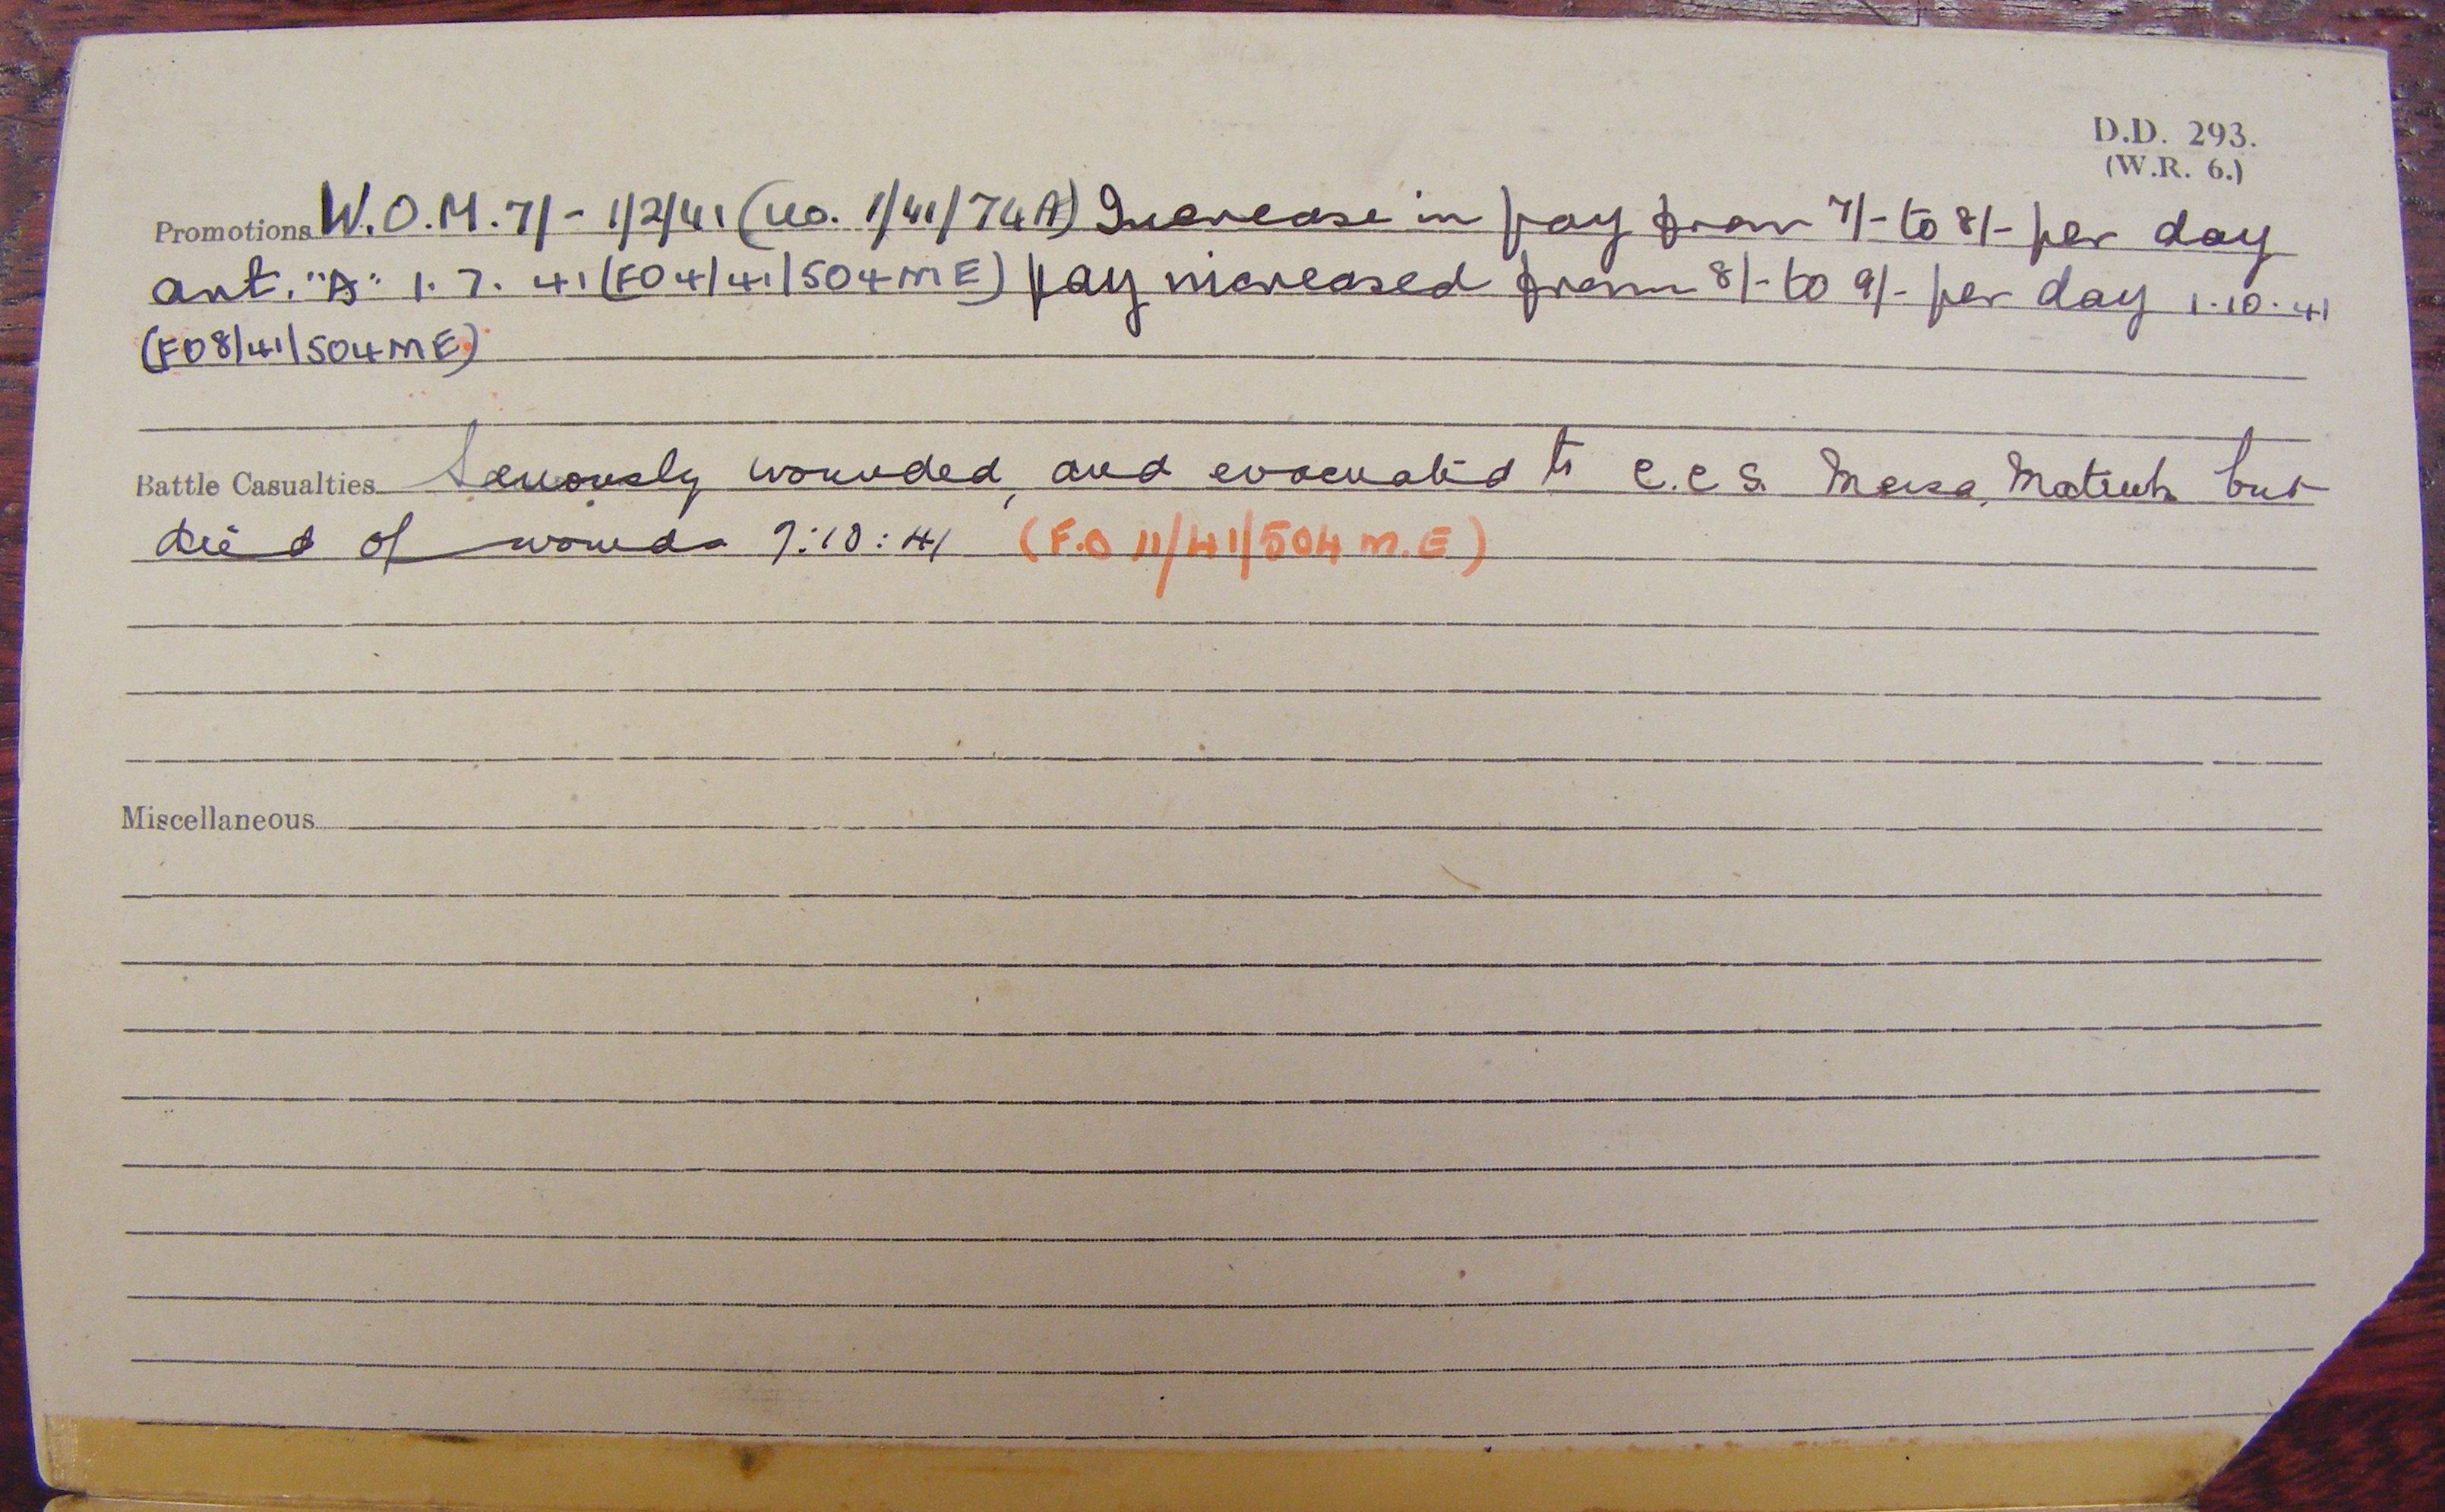 D.D. 293.
(W.R. 6.)
Promotions W.O.M. 7/- 1/2/41 (uo. 1/41/74A) Increase in pay from 7/- to 8/- per day
ant. "A" 1. 7. 41 (FO4/41/504ME) pay increased from 8/- to 9/- per day 1.10.41
(FO8/41/504ME)
Battle Casualties Seriously wounded, and evacuated to C.C.S. Mersa Matruh but
died of wounds 9:10:41 (F.O 11/41/504 M.E)
Miscellaneous